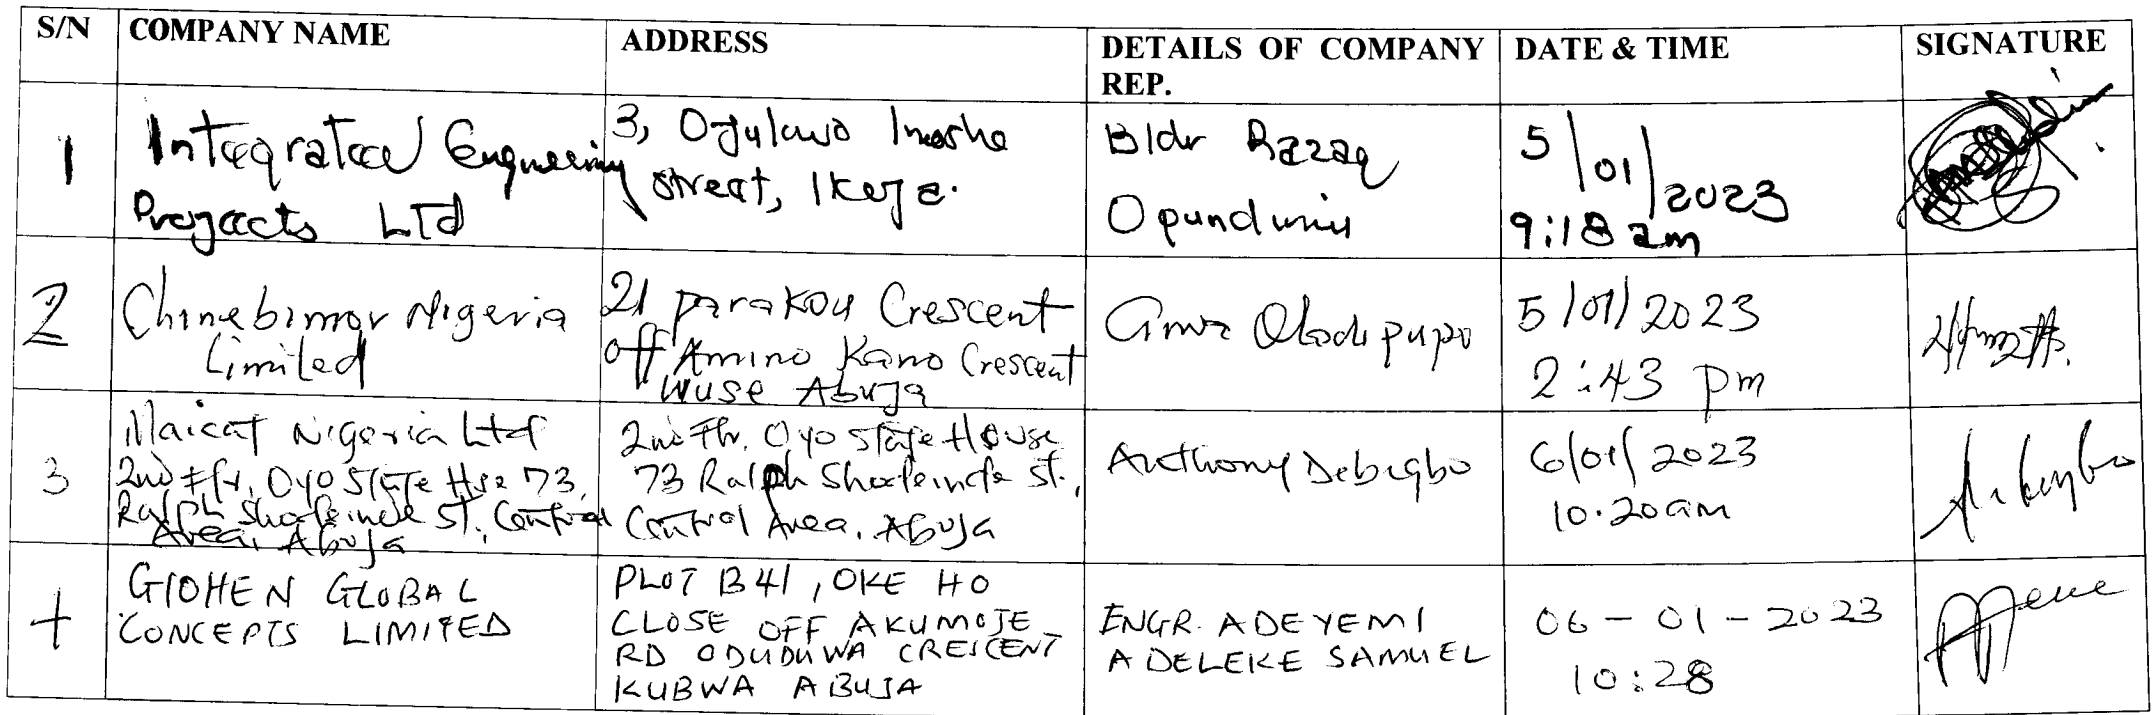 S/N COMPANY NAME ADDRESS DETAILS OF COMPANY REP. DATE & TIME SIGNATURE
1
Integrated Engineering
Projects Ltd
3,
street, Ikeja.
Bldr Razaq
5/01/2023
9:18 am
2
Chinebimor Nigeria
Limited
21 Parakou Crescent
off Amino Kano Crescent
Wuse Abuja
5/01/2023
2:43 pm
3
Maicat Nigeria Ltd
2nd Flr, Oyo State Hse 73,
Ralph Shodeinde St., Central
Area, Abuja
2nd Flr, Oyo State House
73 Ralph Shodeinde St.,
Central Area, Abuja
Anthony Debegbo
6/01/2023
10.20am
4
GIOHEN GLOBAL
CONCEPTS LIMITED
PLOT B41, OKE HO
CLOSE OFF AKUMOJE
RD ODUDUWA CRESCENT
KUBWA ABUJA
ENGR. ADEYEMI
ADELEKE SAMUEL
06-01-2023
10:28